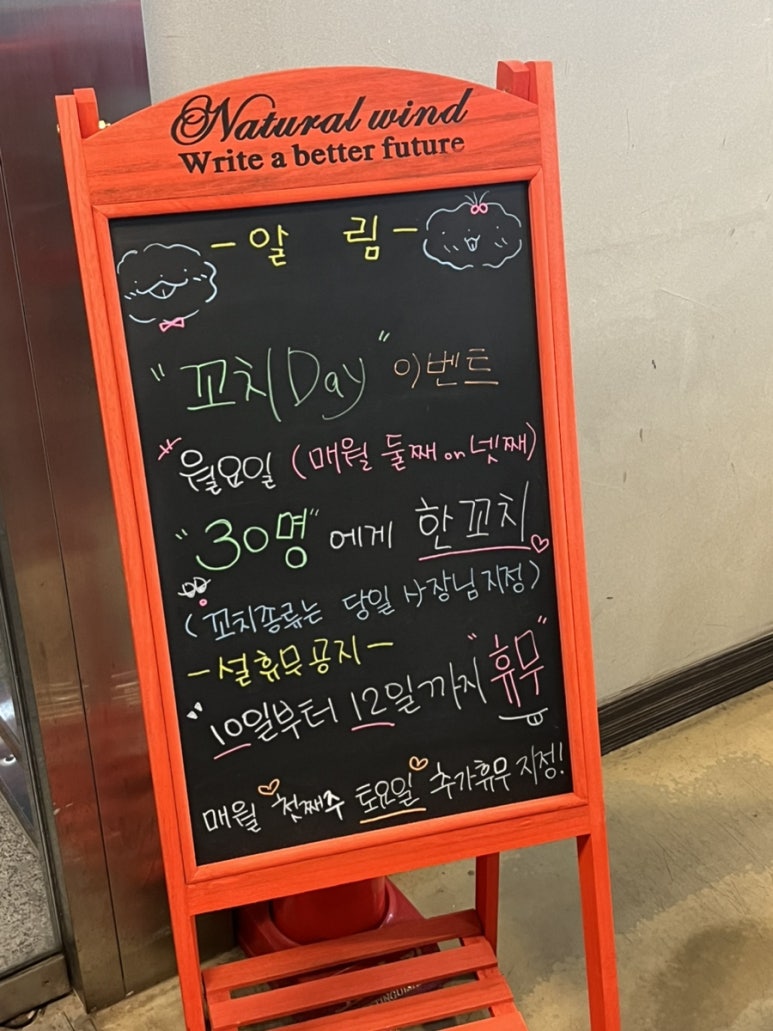 Natural wind
Write a better future
- 알 림 -
"꼬치Day" 이벤트
월요일 (매월 둘째 on 넷째)
"30명" 에게 한꼬치
(꼬치종류는 당일 사장님 지정)
- 설 휴무 공지 -
10일부터 12일까지 "휴무"
매월 첫째주 토요일 추가휴무 지정!